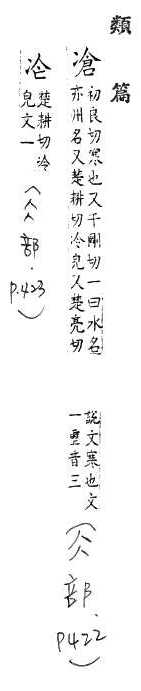 類篇
滄 初良切寒也又千剛切一曰水名
亦州名又楚耕切冷皃又楚亮切
說文寒也文
一重音三
(仌部.
p422)
冾 楚耕切冷
皃文一
(仌部.
p.423)